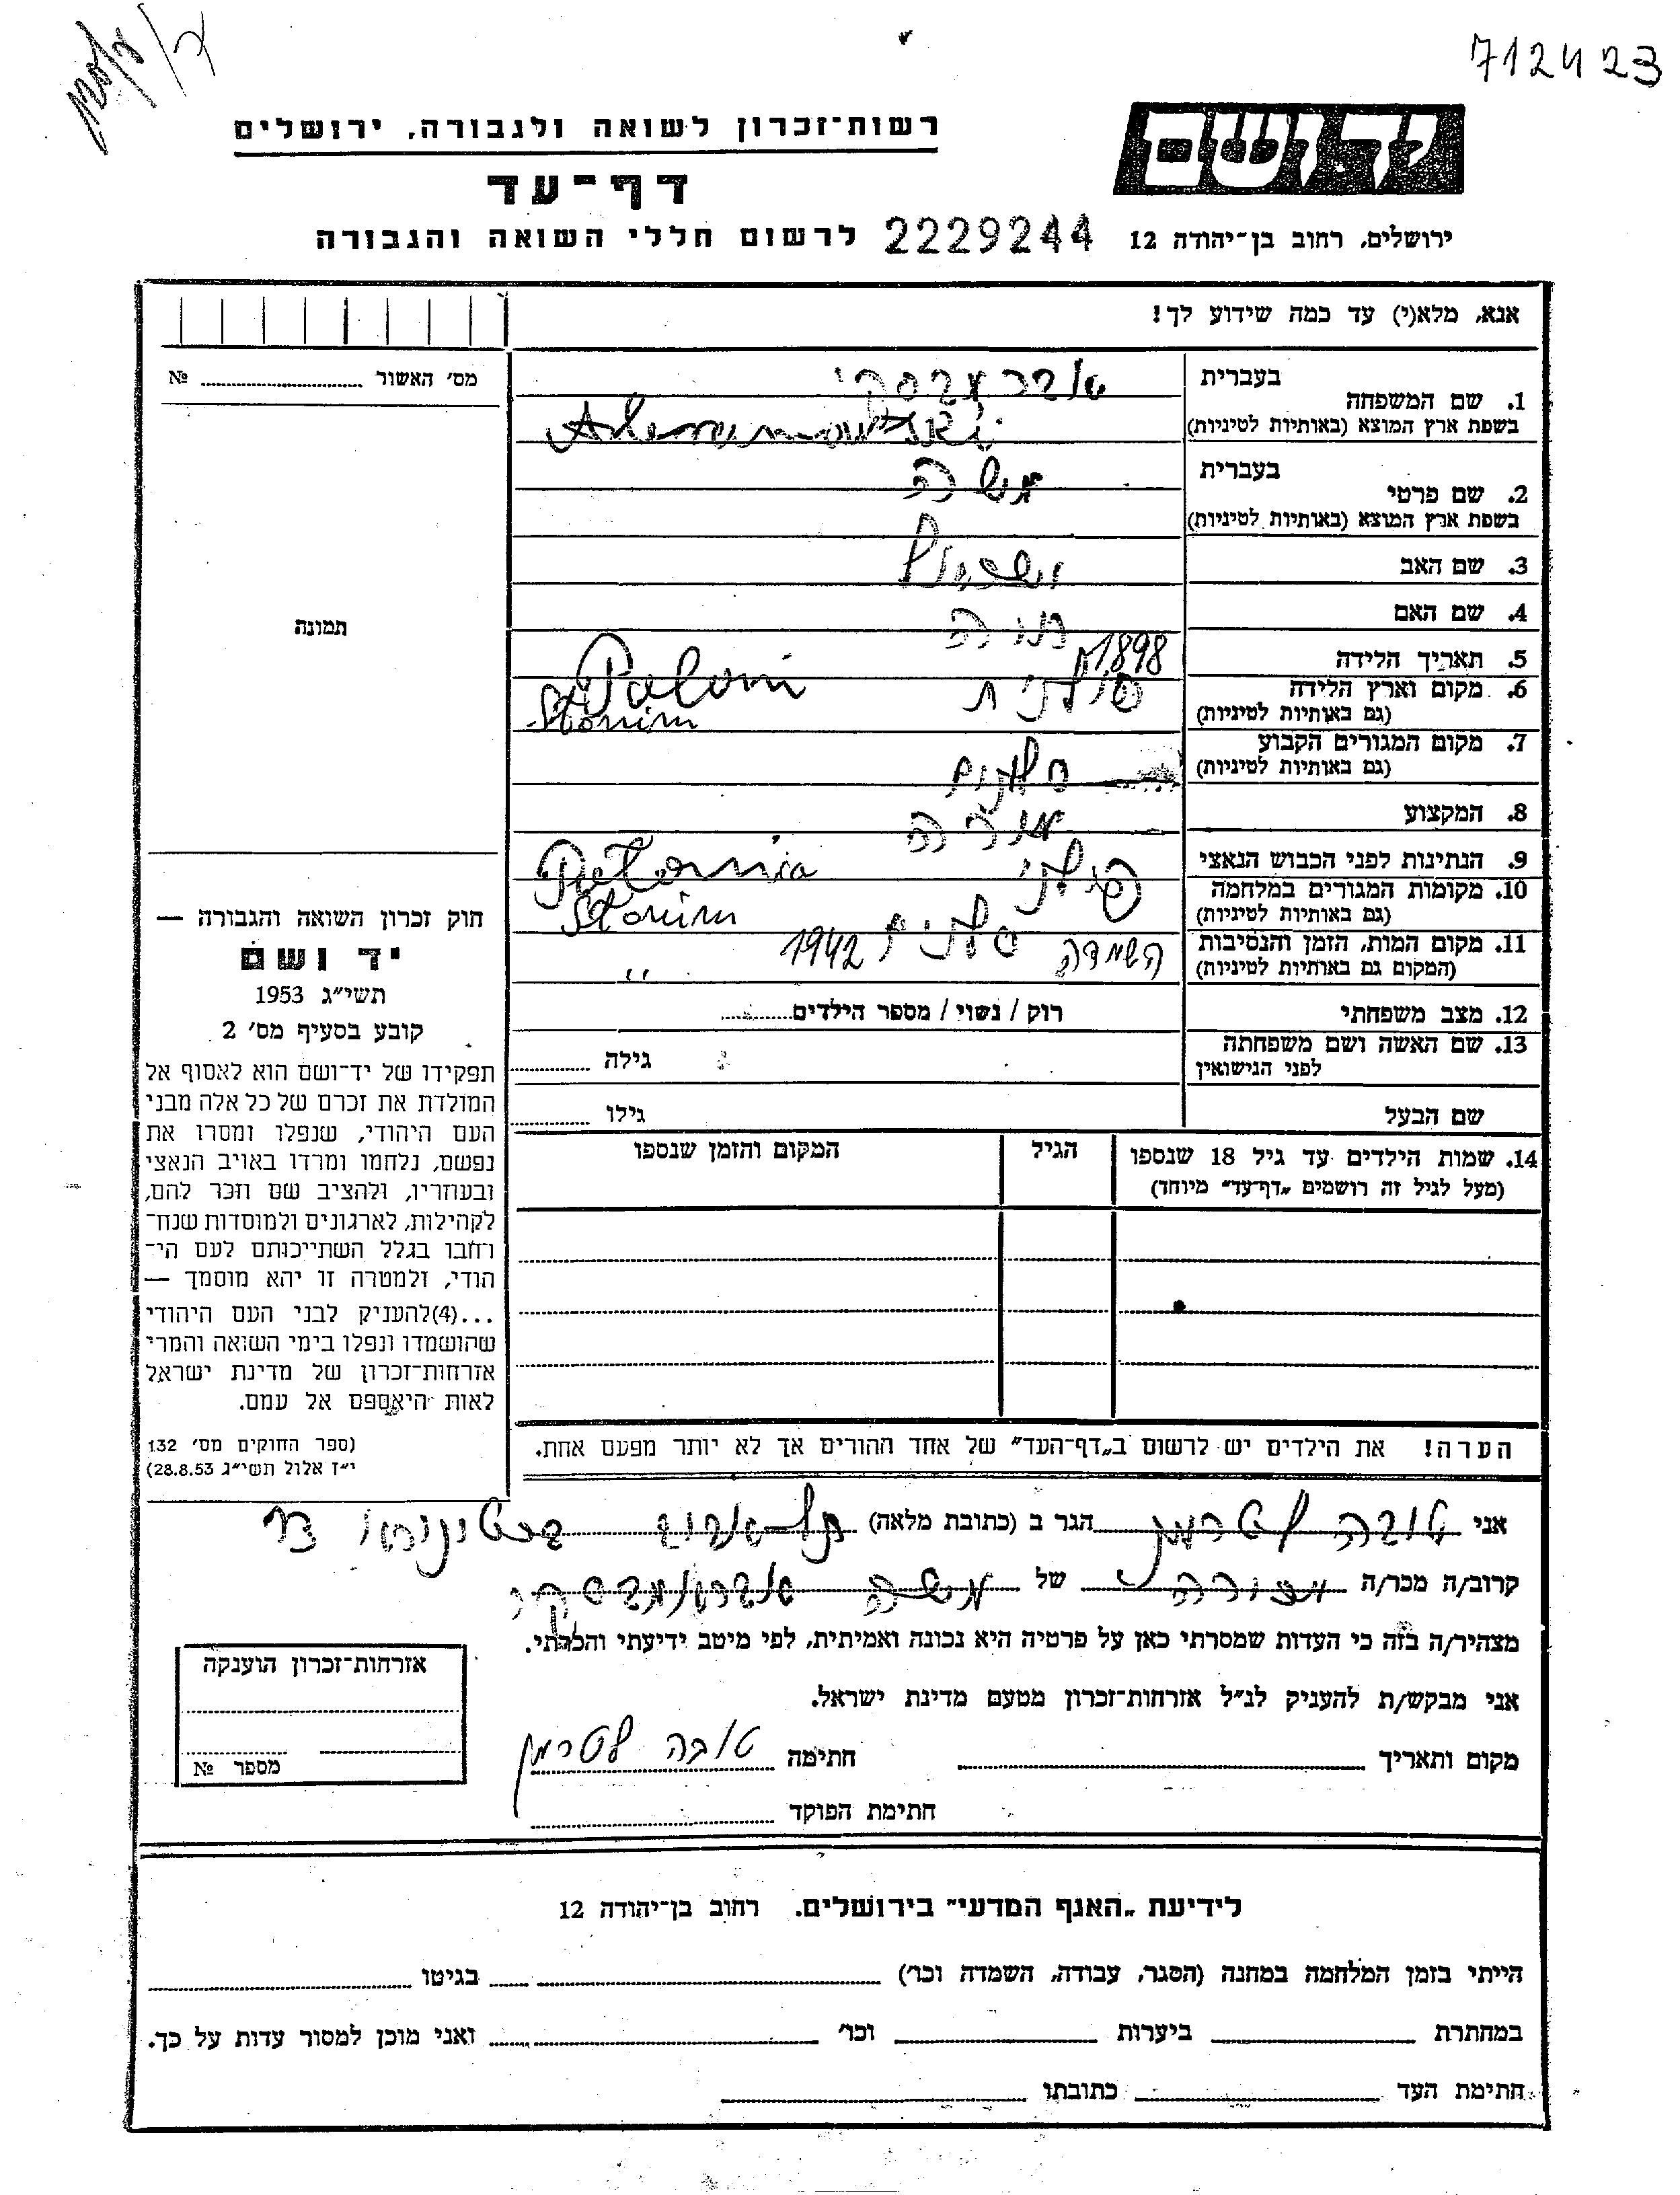 712423
רשות־זכרון לשואה ולגבורה, ירושלים
יד ושם
דף־עד
ירושלים, רחוב בן־יהודה 12
2229244
לרשום חללי השואה והגבורה
אנא, מלא(י) עד כמה שידוע לך!
מס׳ האשור № 
1. שם המשפחה בעברית
בשפת ארץ המוצא (באותיות לטיניות)
2. שם פרטי בעברית משה
בשפת ארץ המוצא (באותיות לטיניות)
3. שם האב
4. שם האם
5. תאריך הלידה 1898
6. מקום וארץ הלידה
(גם באותיות לטיניות) Slonim
7. מקום המגורים הקבוע
(גם באותיות לטיניות)
8. המקצוע מורה
9. הנתינות לפני הכבוש הנאצי
10. מקומות המגורים במלחמה
(גם באותיות לטיניות) Slonim
11. מקום המות, הזמן והנסיבות השמדה 1942
(המקום גם באותיות לטיניות) ״
12. מצב משפחתי רוק / נשוי / מספר הילדים
13. שם האשה ושם משפחתה גילה
לפני הנישואין
שם הבעל גילו
14. שמות הילדים עד גיל 18 שנספו הגיל המקום והזמן שנספו
(מעל לגיל זה רושמים „דף־עד״ מיוחד)
הערה! את הילדים יש לרשום ב„דף־העד״ של אחד ההורים אך לא יותר מפעם אחת.
תמונה
חוק זכרון השואה והגבורה —
יד ושם
תשי״ג 1953
קובע בסעיף מס׳ 2
תפקידו של יד־ושם הוא לאסוף אל
המולדת את זכרם של כל אלה מבני
העם היהודי, שנפלו ומסרו את
נפשם, נלחמו ומרדו באויב הנאצי
ובעוזריו, ולהציב שם וזכר להם,
לקהילות, לארגונים ולמוסדות שנח־
רחבו בגלל השתייכותם לעם הי־
הודי, ולמטרה זו יהא מוסמך —
...(4)להעניק לבני העם היהודי
שהושמדו ונפלו בימי השואה והמרי
אזרחות־זכרון של מדינת ישראל
לאות היאספם אל עמם.
(ספר החוקים מס׳ 132
י״ז אלול תשי״ג 28.8.53)
אני טובה לטרמן הגר ב (כתובת מלאה)
קרוב/ה מכר/ה של משה
מצהיר/ה בזה כי העדות שמסרתי כאן על פרטיה היא נכונה ואמיתית, לפי מיטב ידיעתי והכרתי.
אני מבקש/ת להעניק לנ״ל אזרחות־זכרון מטעם מדינת ישראל.
מקום ותאריך חתימה טובה לטרמן
חתימת הפוקד
אזרחות־זכרון הוענקה
מספר №
לידיעת „האגף המדעי״ בירושלים. רחוב בן־יהודה 12
הייתי בזמן המלחמה במחנה (הסגר, עבודה, השמדה וכו׳) בגיטו
במחתרת ביערות וכו׳ ואני מוכן למסור עדות על כך.
חתימת העד כתובתו